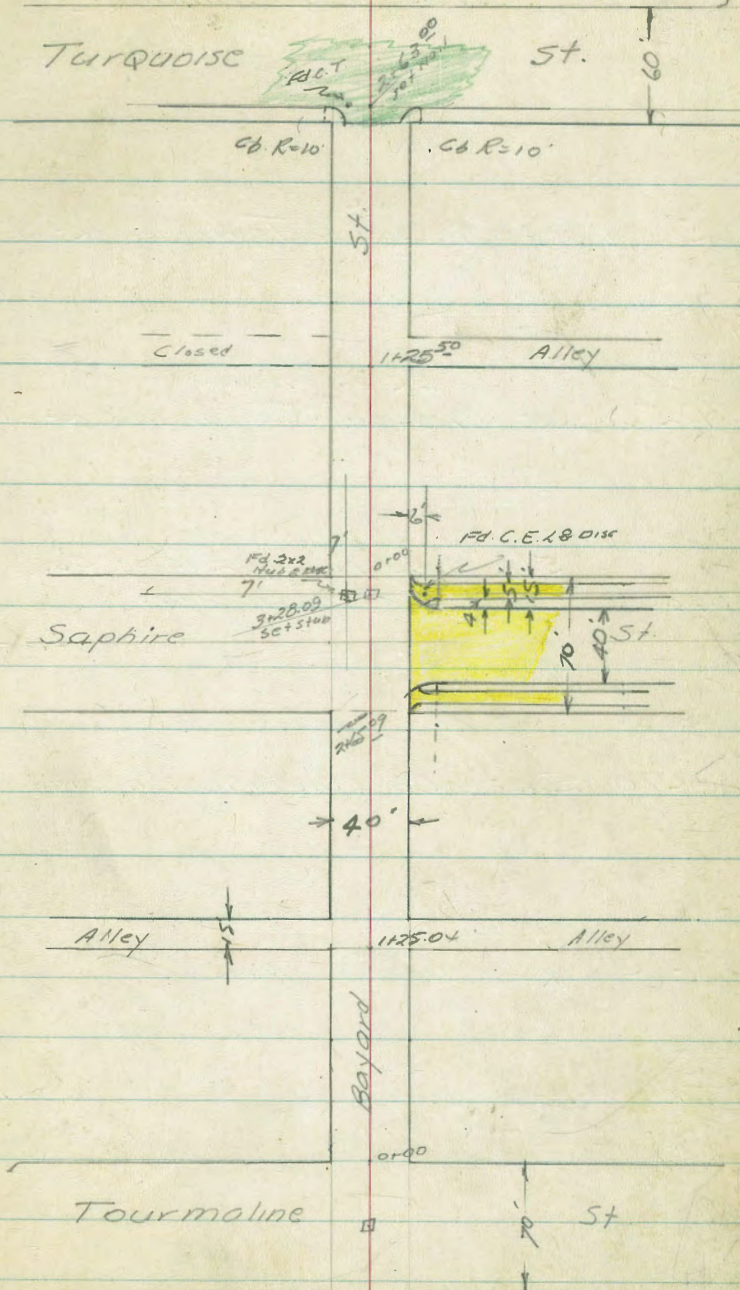 Turquoise St.
60'
Fd C.T
2+63.00
set No. 1
Cb. R=10' Cb R=10'
St.
Closed 1+25.50 Alley
6'
Fd. C.E. L&Disc
7'
0+00
Fd. 2x2
Hub
7'
3+28.09
set stub
4' 5' 15'
Saphire St.
70' 40'
2+65.09
40'
Alley 15' 1+25.04 Alley
Bayard
0+00
Tourmaline St
70'